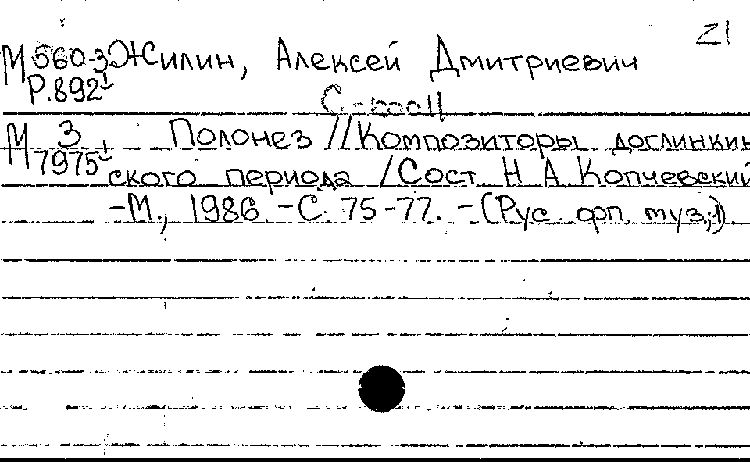 21
М 560-3 Жилин, Алексей Дмитриевич
Р.892
М 3 Полонез // Композиторы доглинкин
7975 ского периода / Сост Н А Копчевский
-М., 1986 - С. 75-77. - (Рус фп муз;1)